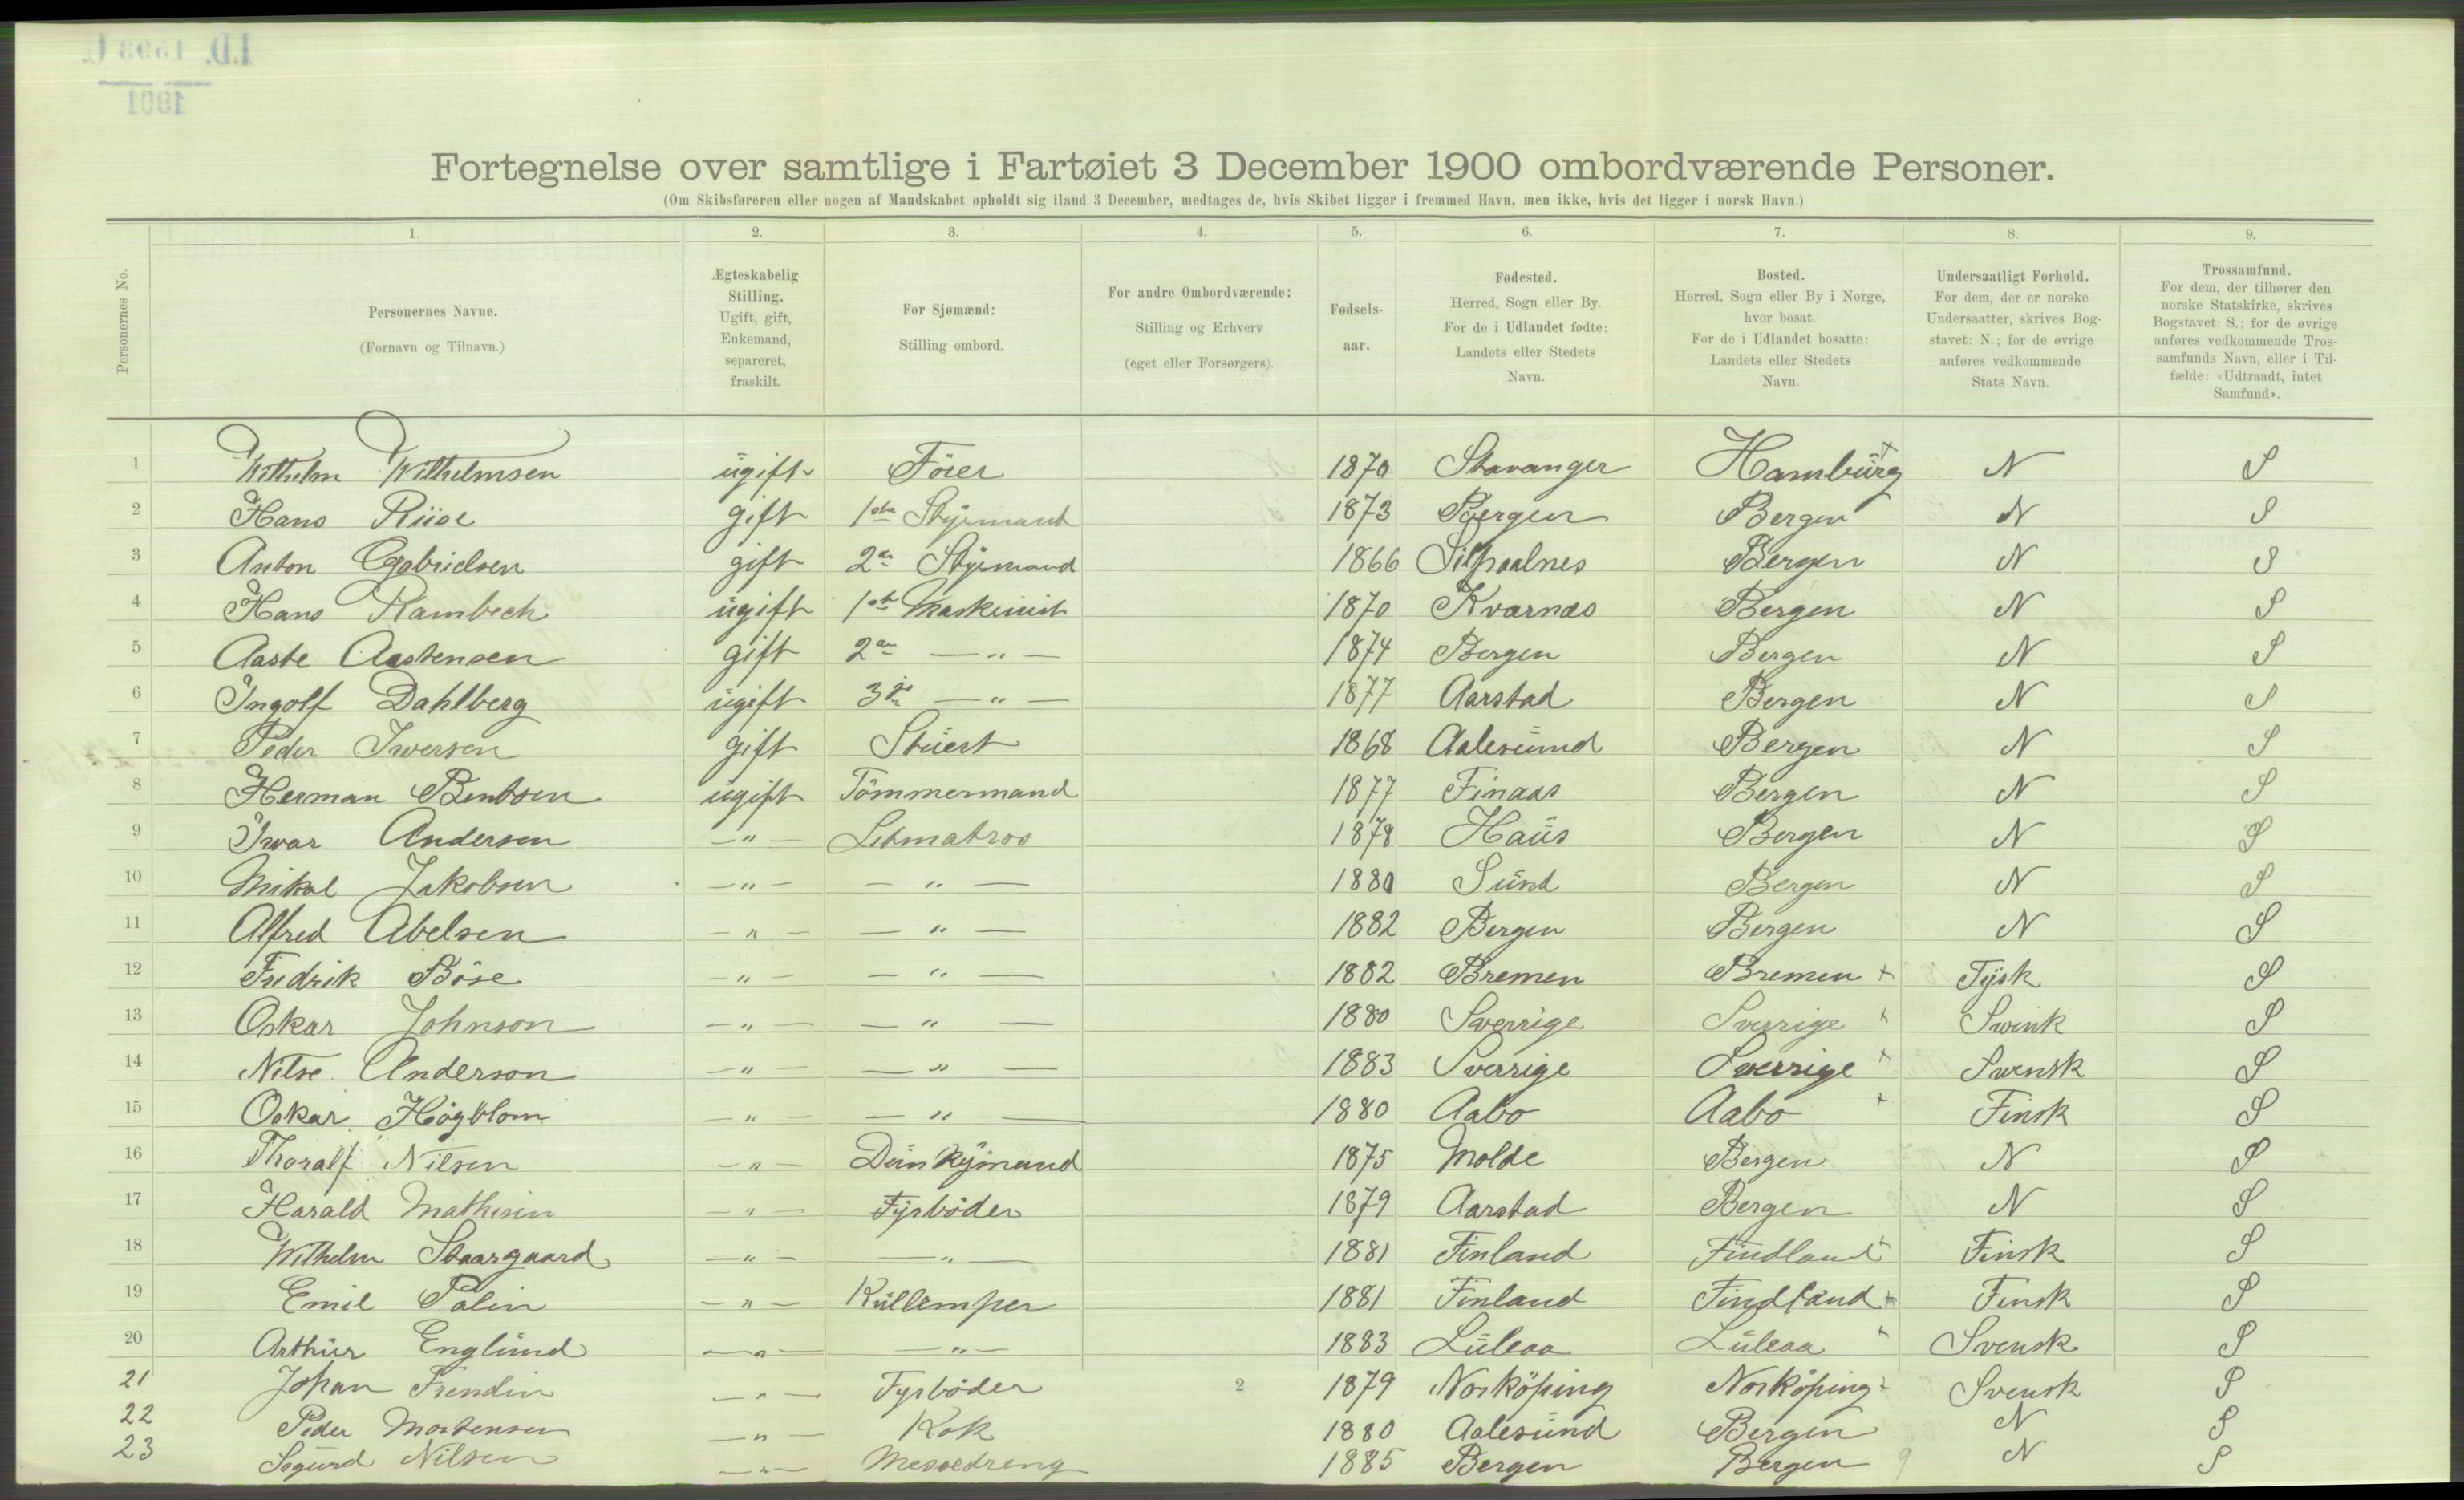 Fortegnelse over samtlige i Fartøiet 3 December 1900 ombordværende Personer.
(Om Skibsføreren eller nogen af Mandskabet opholdt sig iland 3 December, medtages de, hvis Skibet ligger i fremmed Havn, men ikke, hvis det ligger i norsk Havn.)
1. 2. 3. 4. 5. 6. 7. 8. 9.
Personernes No.
Personernes Navne.
(Fornavn og Tilnavn.)
Ægteskabelig
Stilling.
Ugift, gift,
Enkemand,
separeret,
fraskilt.
For Sjømænd:
Stilling ombord.
For andre Ombordværende:
Stilling og Erhverv
(eget eller Forsørgers).
Fødsels-
aar.
Fødested.
Herred, Sogn eller By.
For de i Udlandet fødte:
Landets eller Stedets
Navn.
Bosted.
Herred, Sogn eller By i Norge,
hvor bosat.
For de i Udlandet bosatte:
Landets eller Stedets
Navn.
Undersaatligt Forhold.
For dem, der er norske
Undersaatter, skrives Bog-
stavet: N.; for de øvrige
anføres vedkommende
Stats Navn.
Trossamfund.
For dem, der tilhører den
norske Statskirke, skrives
Bogstavet: S.; for de øvrige
anføres vedkommende Tros-
samfunds Navn, eller i Til-
fælde: «Udtraadt, intet
Samfund».
1 Wilhelm Wilhelmsen ugift Förer 1870 Stavanger Hamburg + N S
2 Hans Riise gift 1ste Styrmand 1873 Bergen Bergen N S
3 Anton Gabrielsen gift 2en Styrmand 1866 N S Bergen
4 Hans Rambech ugift 1ste Maskinist 1870 Kvarnæs Bergen N S
5 Aaste Aastensen gift 2en — " — 1874 Bergen Bergen N S
6 Ingolf Dahlberg ugift 3die — " — 1877 Aarstad Bergen N S
7 Peder Iversen gift Stuert 1868 Aalesund Bergen N S
8 Herman Bentsen ugift Tömmermand 1877 Finaas Bergen N S
9 Ivar Andersen — " — Letmatros 1878 Haus Bergen N S
10 Mikal Jakobsen — " — — " — 1880 Sund Bergen N S
11 Alfred Abelsen — " — — " — 1882 Bergen Bergen N S
12 Fredrik Böse — " — — " — 1882 Bremen Bremen + Tysk S
13 Oskar Johnson — " — — " — 1880 Sverrige Sverrige + Svensk S
14 Nilse Anderson — " — — " — 1883 Sverrige Sverrige + Svensk S
15 Oskar Högblom — " — — " — 1880 Aabo Aabo + Finsk S
16 Thoralf Nilsen — " — Dunkymand 1875 Molde Bergen N S
17 Harald Mathisen — " — Fyrböder 1879 Aarstad Bergen N S
18 Wilhelm Staargaard — " — — " — 1881 Finland Findland + Finsk S
19 Emil Palin — " — Kullemper 1881 Finland Findland + Finsk S
20 Arthur Englund — " — — " — 1883 Luleaa Luleaa + Svensk S
21 Johan Frendin — " — Fyrböder 2 1879 Norköping Norköping + Svensk S
22 Peder Mortensen — " — Kok 1880 Aalesund Bergen N S
23 Sigurd Nilsen — " — Messedreng 1885 Bergen Bergen 9 N S